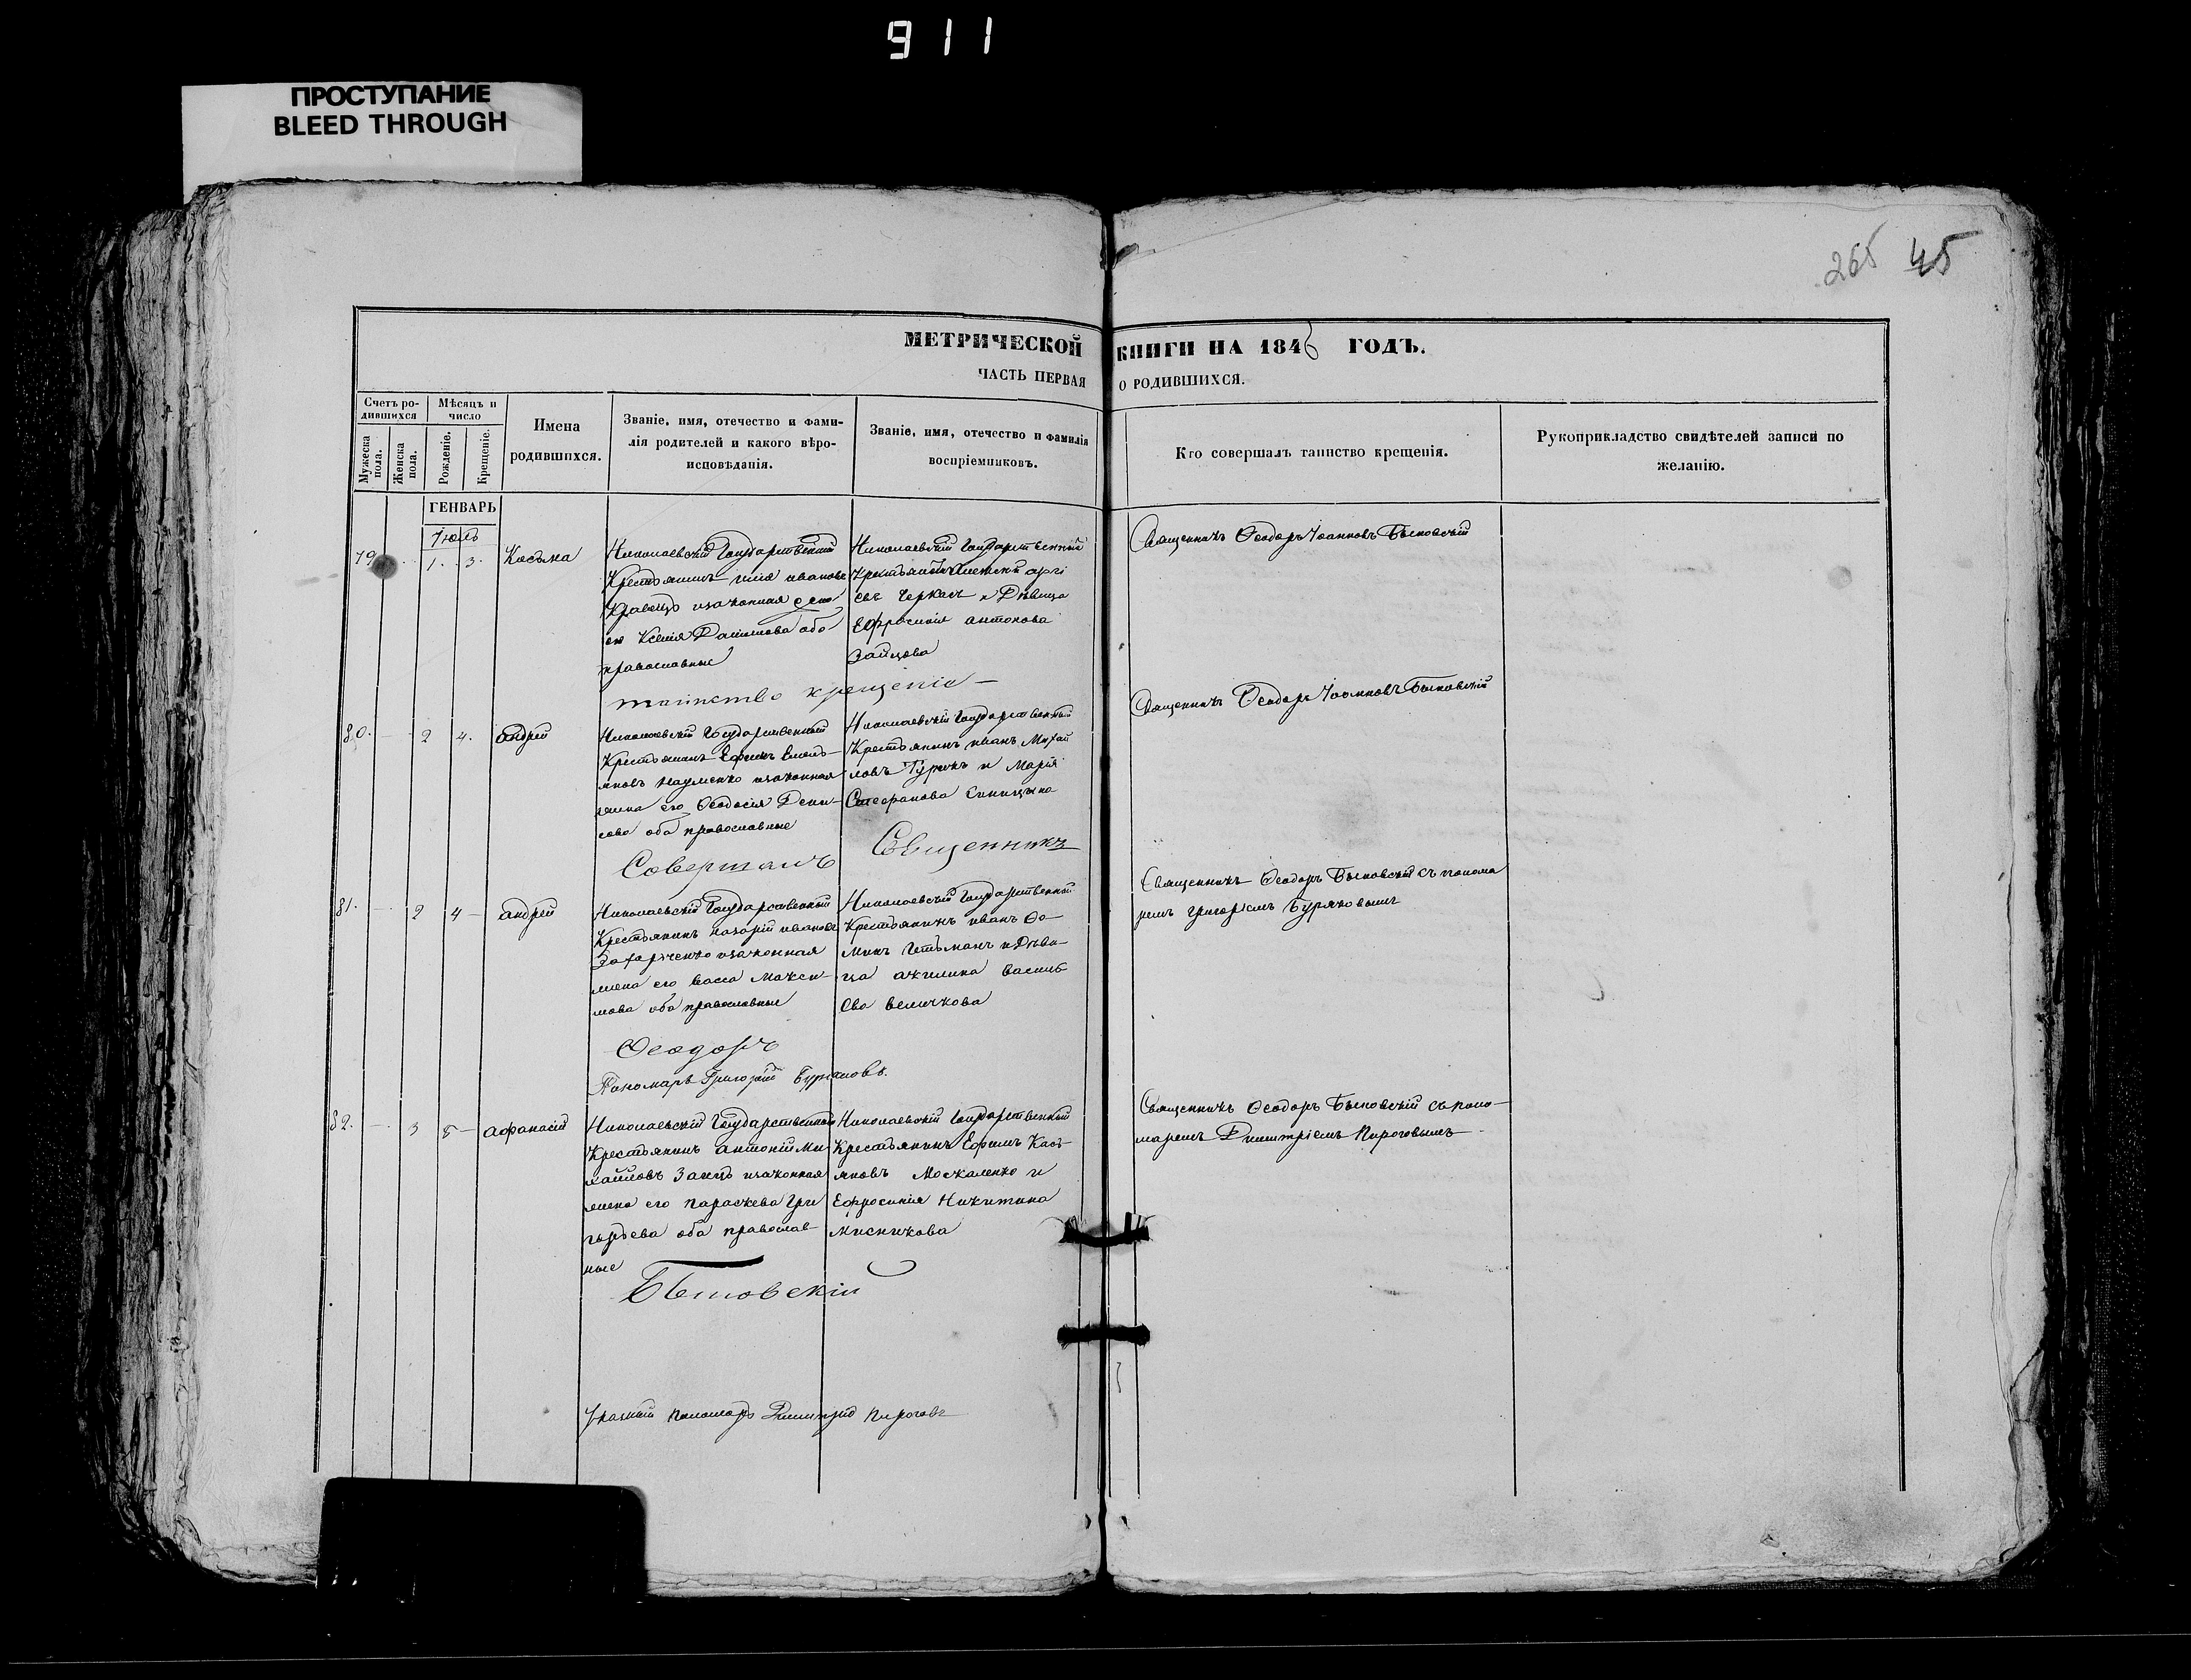 911
ПРОСТУПАНИЕ
BLEED THROUGH
265 45
МЕТРИЧЕСКОЙ КНИГИ НА 1846 ГОДЪ.
ЧАСТЬ ПЕРВАЯ О РОДИВШИХСЯ.
Счетъ ро-
дившихся
Мужеска
пола.
Женска
пола.
Мѣсяцъ и
число
Рожденіе.
Крещеніе.
Имена
родившихся.
Званіе, имя, отечество и фами-
лія родителей и какого вѣро-
исповѣданія.
Званіе, имя, отечество и фамилія
воспріемниковъ.
Кто совершалъ таинство крещенія.
Рукоприкладство свидѣтелей записи по
желанію.
ГЕНВАРЬ
Іюль
79. 1. 3. Косьма
Николаевскій Государственный
Крестьянинъ иванов
Кравецъ изаконная
Ксенія оба
православные
Николаевскій Государственный
Крестьянинъ
евъ Черкасъ и Дѣвица
Ефросинія антонова
Зайцова
Священникъ Ѳеодоръ Іоанновъ Быковскій
таинство крещенія —
80. — 2 4. андрей
Николаевскій Государственный
Крестьянинъ Ефимъ Емель-
яновъ Науменко изаконная
жена его Ѳеодосія Дени-
сова оба православные
Николаевскій Государственный
Крестьянинъ иванъ Михай
ловъ Турикъ и Марія
Стефанова Синицына
Священникъ Ѳеодоръ Іоанновъ Быковскій
Совершалъ Священникъ
81. — 2 4 — андрей
Николаевскій Государственный
Крестьянинъ назарій иванов
Захарченко изаконная
жена его васса Макси-
мова оба православные
Николаевскій Государственный
Крестьянинъ иванъ Ѳо-
минъ Гетьманъ и Дѣви-
ца акилина василь
ева величкова
Священникъ Ѳеодоръ Быковскій съ понома
ремъ григоріемъ Буряковымъ
Ѳеодоръ
Пономарь Григорій Буряковъ.
82. — 3 5 — афанасій
Николаевскій Государственный
Крестьянинъ антоній Ми
хайловъ Заецъ изаконная
жена его параскева Гри
горьева оба православ-
ные
Николаевскій Государственный
Крестьянинъ Ефимъ Кась-
яновъ Москаленко и
Ефросинія Никитина
Мисникова
Священникъ Ѳеодоръ Быковскій съ поно-
маремъ Димитріемъ Пироговымъ
Быковскій
Указный пономарь Димитрій Пироговъ